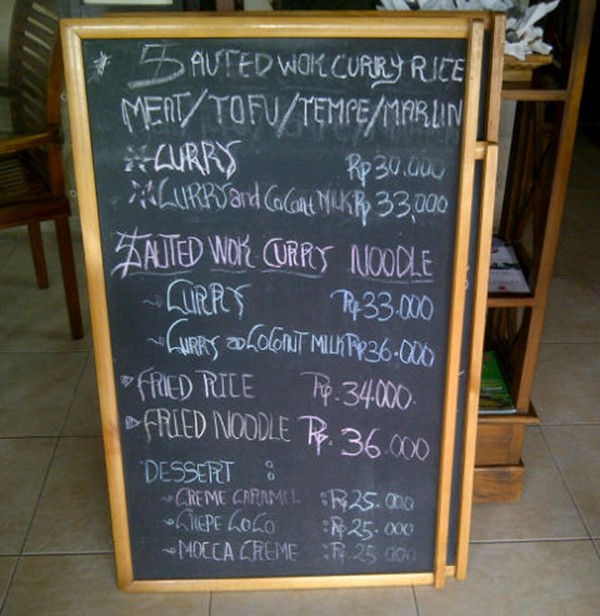 SAUTED WOK CURRY RICE
MEAT/TOFU/TEMPE/MARLIN
CURRY Rp 30.000
CURRY and CoConut MILK Rp 33,000
SAUTED WOK CURRY NOODLE
CURRY Rp 33.000
CURRY and COCONUT MILK Rp 36.000
FRIED RICE Rp. 34.000.
FRIED NOODLE Rp. 36.000
DESSERT :
CREME CARAMEL : Rp 25.000
CREPE COCO : Rp 25.000
MOCCA CREME : Rp 25 000